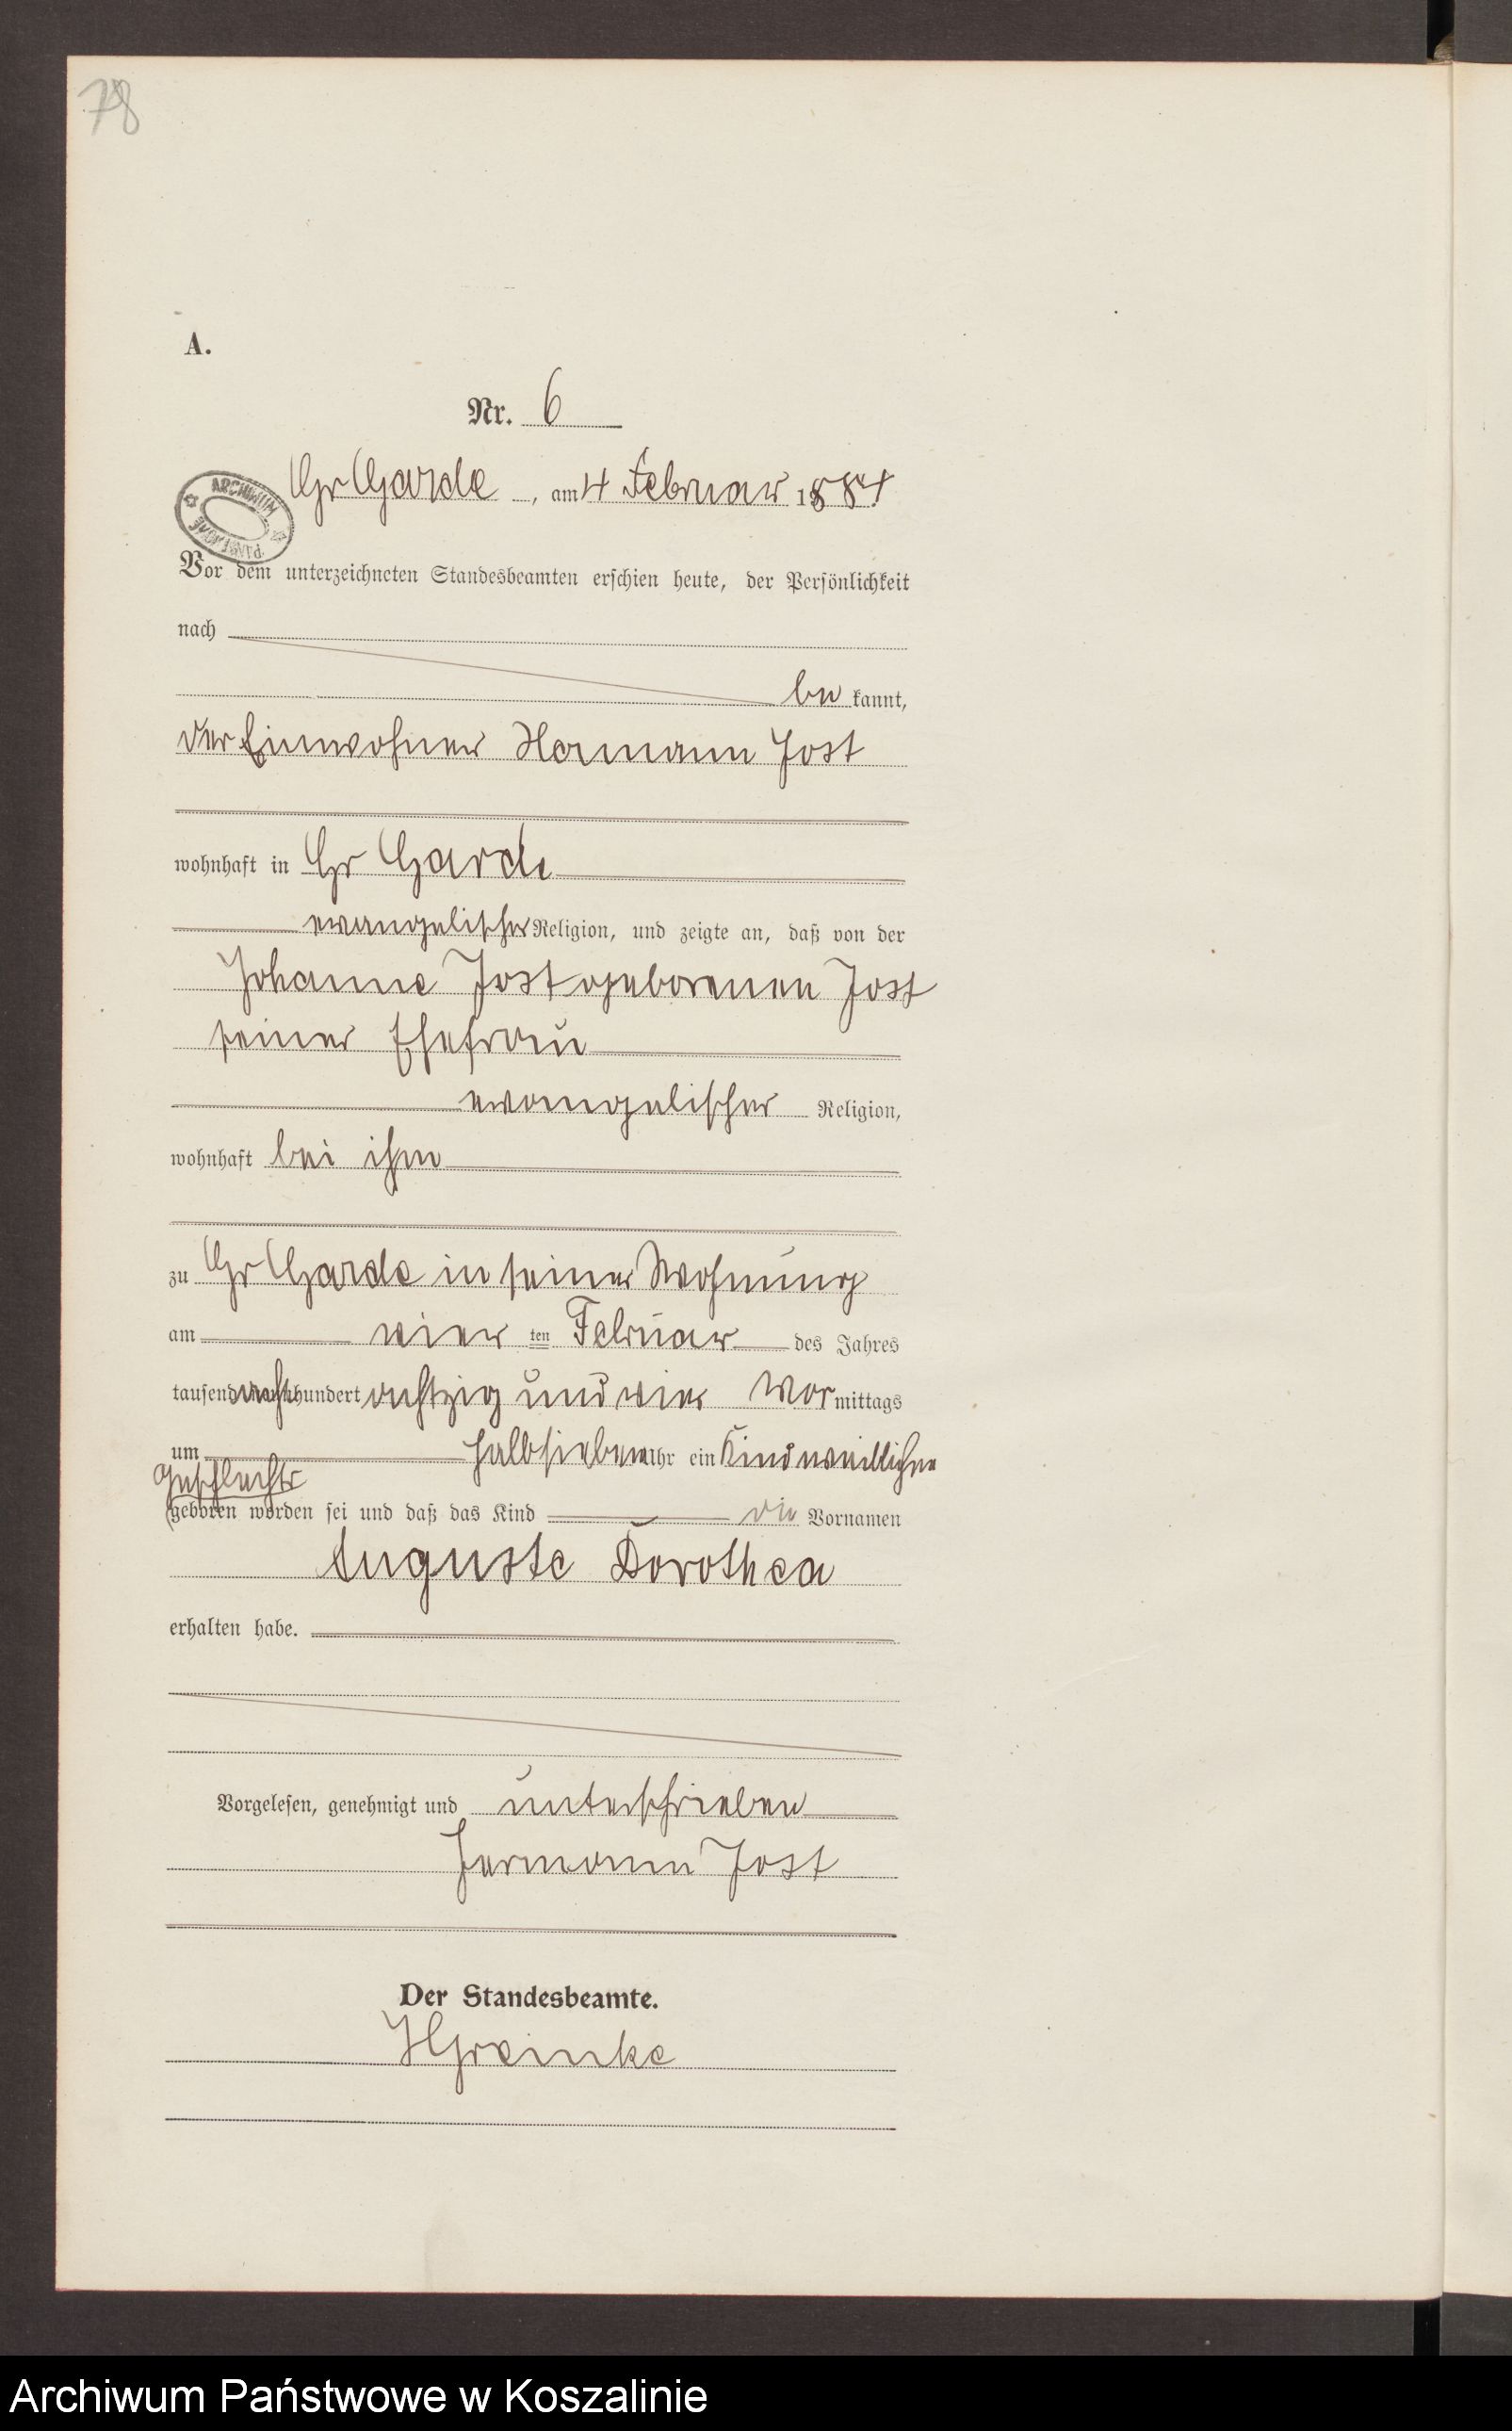 78
A.
Nr. 6
Gr Garde, am 4 Februar 1884
ARCHIWUM PAŃSTWOWE
Vor dem unterzeichneten Standesbeamten erschien heute, der Persönlichkeit
nach
be kannt,
der Einwohner Hermann Jost
wohnhaft in Gr Garde
evangelischer Religion, und zeigte an, daß von der
Johanne Jost geborenen Jost
seiner Ehefrau
evangelischer Religion,
wohnhaft bei ihm
zu Gr Garde in seiner Wohnung
am vier ten Februar des Jahres
tausend acht hundert achtzig und vier Vor mittags
um halb sieben Uhr ein Kind weiblichen
Geschlechts
geboren worden sei und daß das Kind die Vornamen
Auguste Dorothea
erhalten habe.
Vorgelesen, genehmigt und unterschrieben
Hermann Jost
Der Standesbeamte.
HGreinke
Archiwum Państwowe w Koszalinie